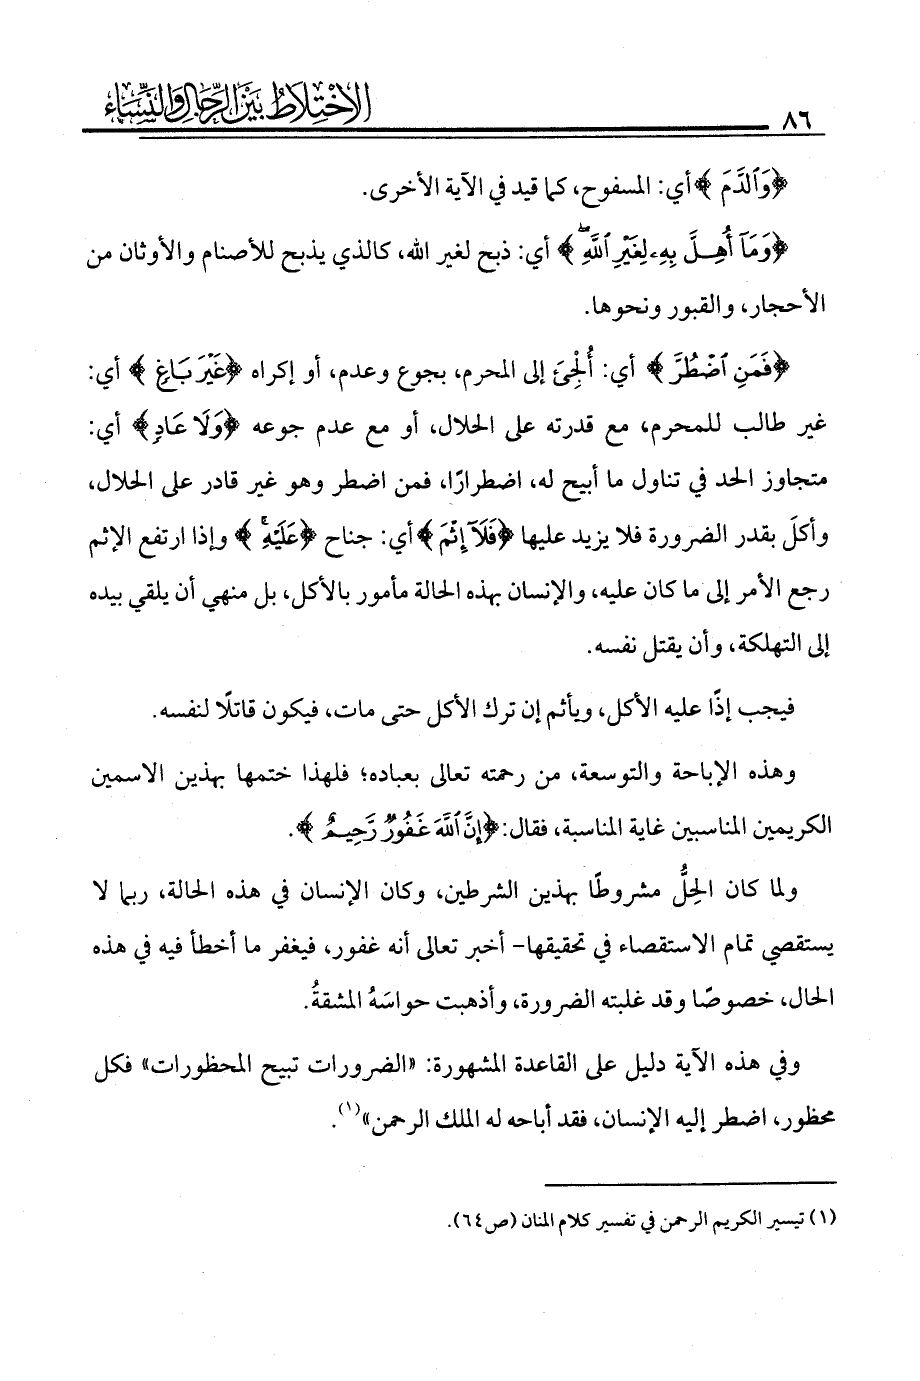 ٨٦
الاختلاط بين الرجال والنساء
﴿وَٱلدَّمَ﴾ أي: المسفوح، كما قيد في الآية الأخرى.
﴿وَمَآ أُهِلَّ بِهِۦ لِغَيْرِ ٱللَّهِۖ﴾ أي: ذبح لغير الله، كالذي يذبح للأصنام والأوثان من
الأحجار، والقبور ونحوها.
﴿فَمَنِ ٱضْطُرَّ﴾ أي: أُلْجِئَ إلى المحرم، بجوع وعدم، أو إكراه ﴿غَيْرَ بَاغٍ﴾ أي:
غير طالب للمحرم، مع قدرته على الحلال، أو مع عدم جوعه ﴿وَلَا عَادٍ﴾ أي:
متجاوز الحد في تناول ما أبيح له، اضطرارًا، فمن اضطر وهو غير قادر على الحلال،
وأكلَ بقدر الضرورة فلا يزيد عليها ﴿فَلَآ إِثْمَ﴾ أي: جناح ﴿عَلَيْهِۚ﴾ وإذا ارتفع الإثم
رجع الأمر إلى ما كان عليه، والإنسان بهذه الحالة مأمور بالأكل، بل منهي أن يلقي بيده
إلى التهلكة، وأن يقتل نفسه.
فيجب إذًا عليه الأكل، ويأثم إن ترك الأكل حتى مات، فيكون قاتلًا لنفسه.
وهذه الإباحة والتوسعة، من رحمته تعالى بعباده؛ فلهذا ختمها بهذين الاسمين
الكريمين المناسبين غاية المناسبة، فقال: ﴿إِنَّ ٱللَّهَ غَفُورٌ رَّحِيمٌ﴾.
ولما كان الحِلُّ مشروطًا بهذين الشرطين، وكان الإنسان في هذه الحالة، ربما لا
يستقصي تمام الاستقصاء في تحقيقها- أخبر تعالى أنه غفور، فيغفر ما أخطأ فيه في هذه
الحال، خصوصًا وقد غلبته الضرورة، وأذهبت حواسَهُ المشقةُ.
وفي هذه الآية دليل على القاعدة المشهورة: «الضرورات تبيح المحظورات» فكل
محظور، اضطر إليه الإنسان، فقد أباحه له الملك الرحمن»(١).
(١) تيسير الكريم الرحمن في تفسير كلام المنان (ص٦٤).